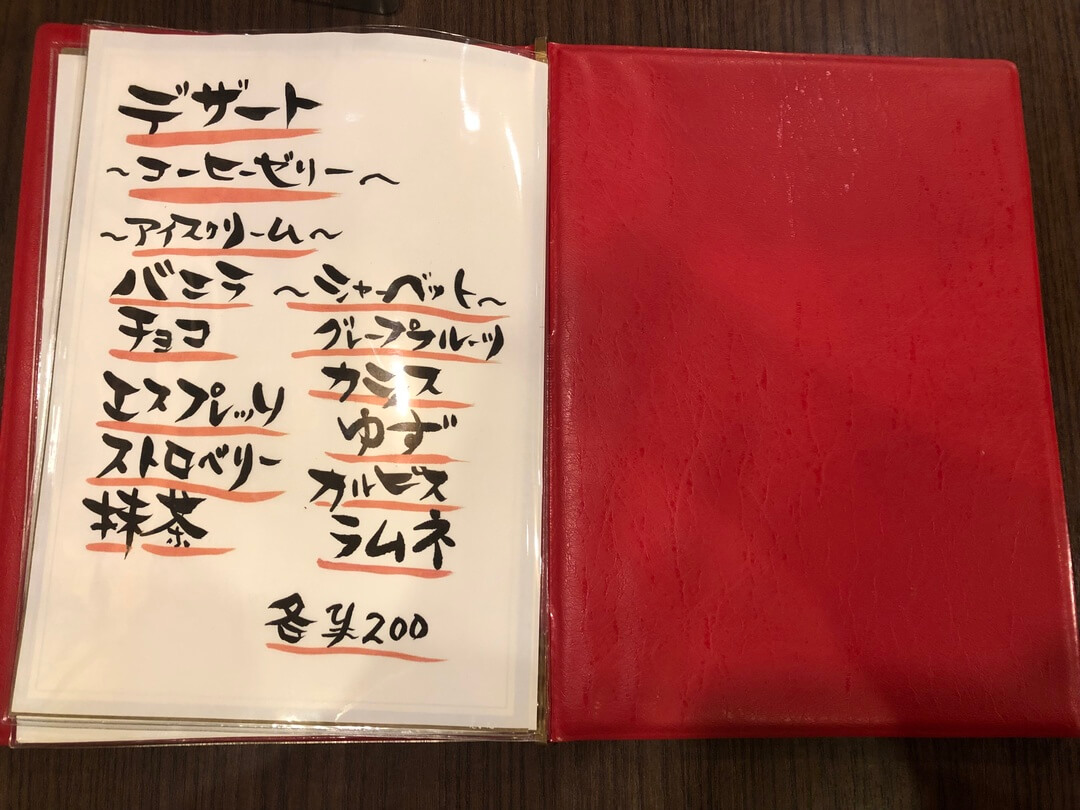 デザート
~コーヒーゼリー~
~アイスクリーム~
バニラ
チョコ
エスプレッソ
ストロベリー
抹茶
~シャーベット~
グレープフルーツ
カシス
ゆず
カルピス
ラムネ
各¥200